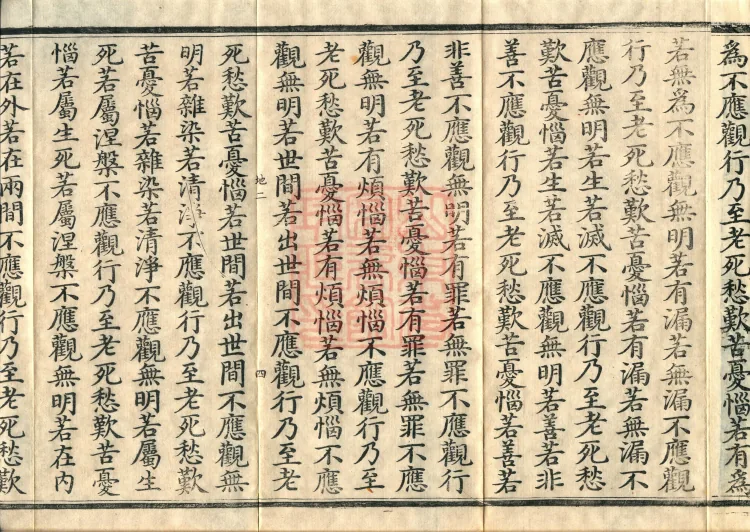 為不應觀行乃至老死愁歎苦憂惱若有為
若無為不應觀無明若有漏若無漏不應觀
行乃至老死愁歎苦憂惱若有漏若無漏不
應觀無明若生若滅不應觀行乃至老死愁
歎苦憂惱若生若滅不應觀無明若善若非
善不應觀行乃至老死愁歎苦憂惱若善若
非善不應觀無明若有罪若無罪不應觀行
乃至老死愁歎苦憂惱若有罪若無罪不應
觀無明若有煩惱若無煩惱不應觀行乃至
老死愁歎苦憂惱若有煩惱若無煩惱不應
觀無明若世間若出世間不應觀行乃至老
地二 四
死愁歎苦憂惱若世間若出世間不應觀無
明若雜染若清淨不應觀行乃至老死愁歎
苦憂惱若雜染若清淨不應觀無明若屬生
死若屬涅槃不應觀行乃至老死愁歎苦憂
惱若屬生死若屬涅槃不應觀無明若在內
若在外若在兩間不應觀行乃至老死愁歎